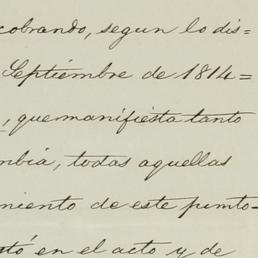 cobrando, segun lo dis=
Septiembre de 1814=
, que manifiesta tanto
mbia, todas aquellas
miento de este punto-
stó en el acto y de